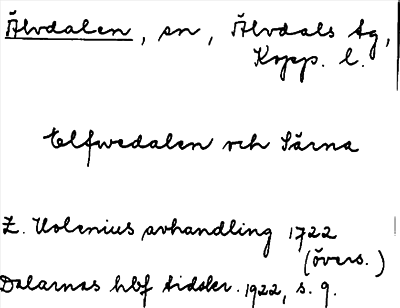 Älvdalen, sn, Älvdals tg,
Kopp. l.
Elfwedalen och Särna
Z. Holenius avhandling 1722
(övers.)
Dalarnas hbf tidskr. 1922, s. 9.